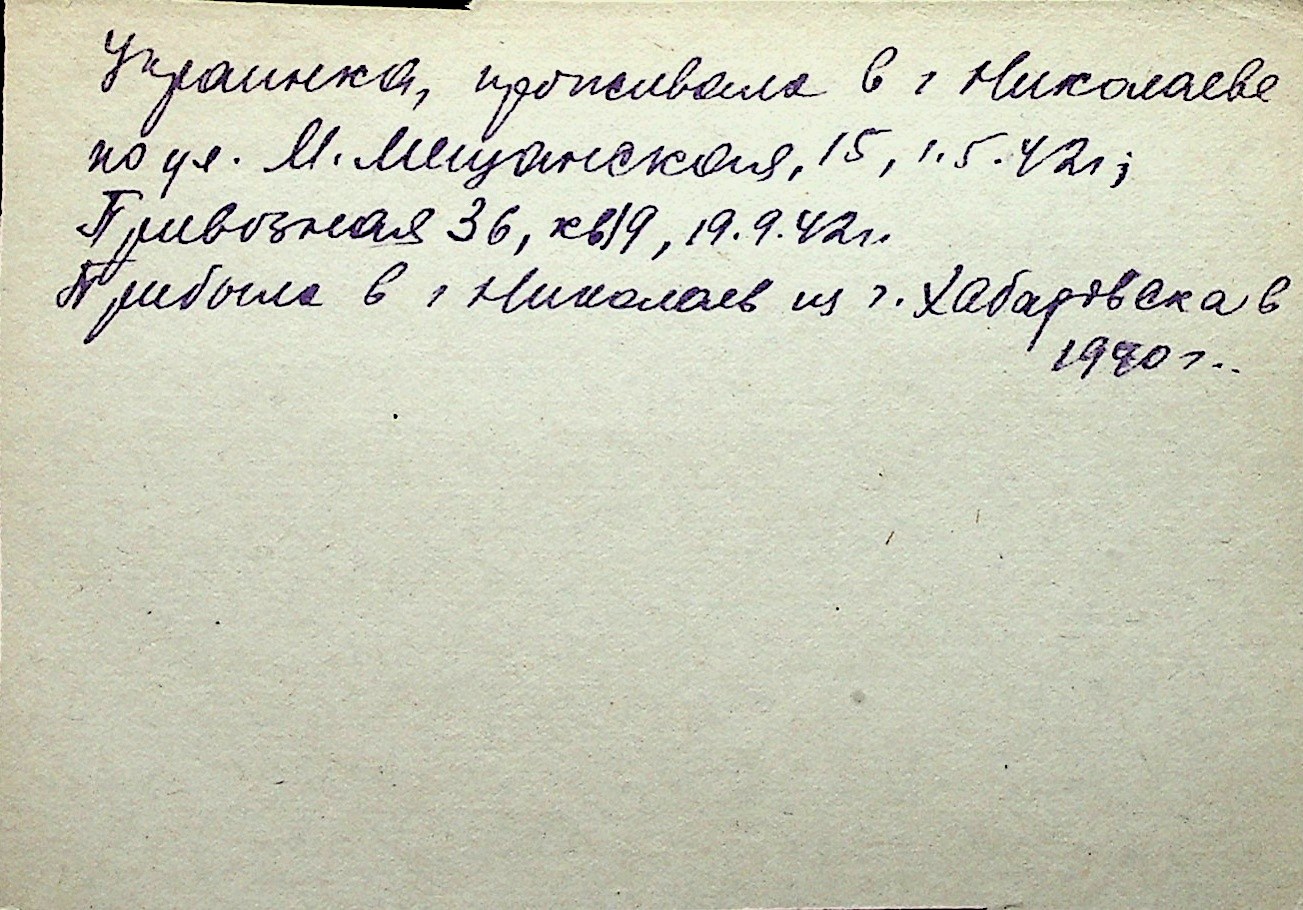 Украинка, проживала в г Николаеве
по ул. М. Мещанская, 15, 1.5.42г;
Привозная 36, кв19, 19.9.42г.
Прибыла в г Николаев из г. Хабаровска в
1940г..